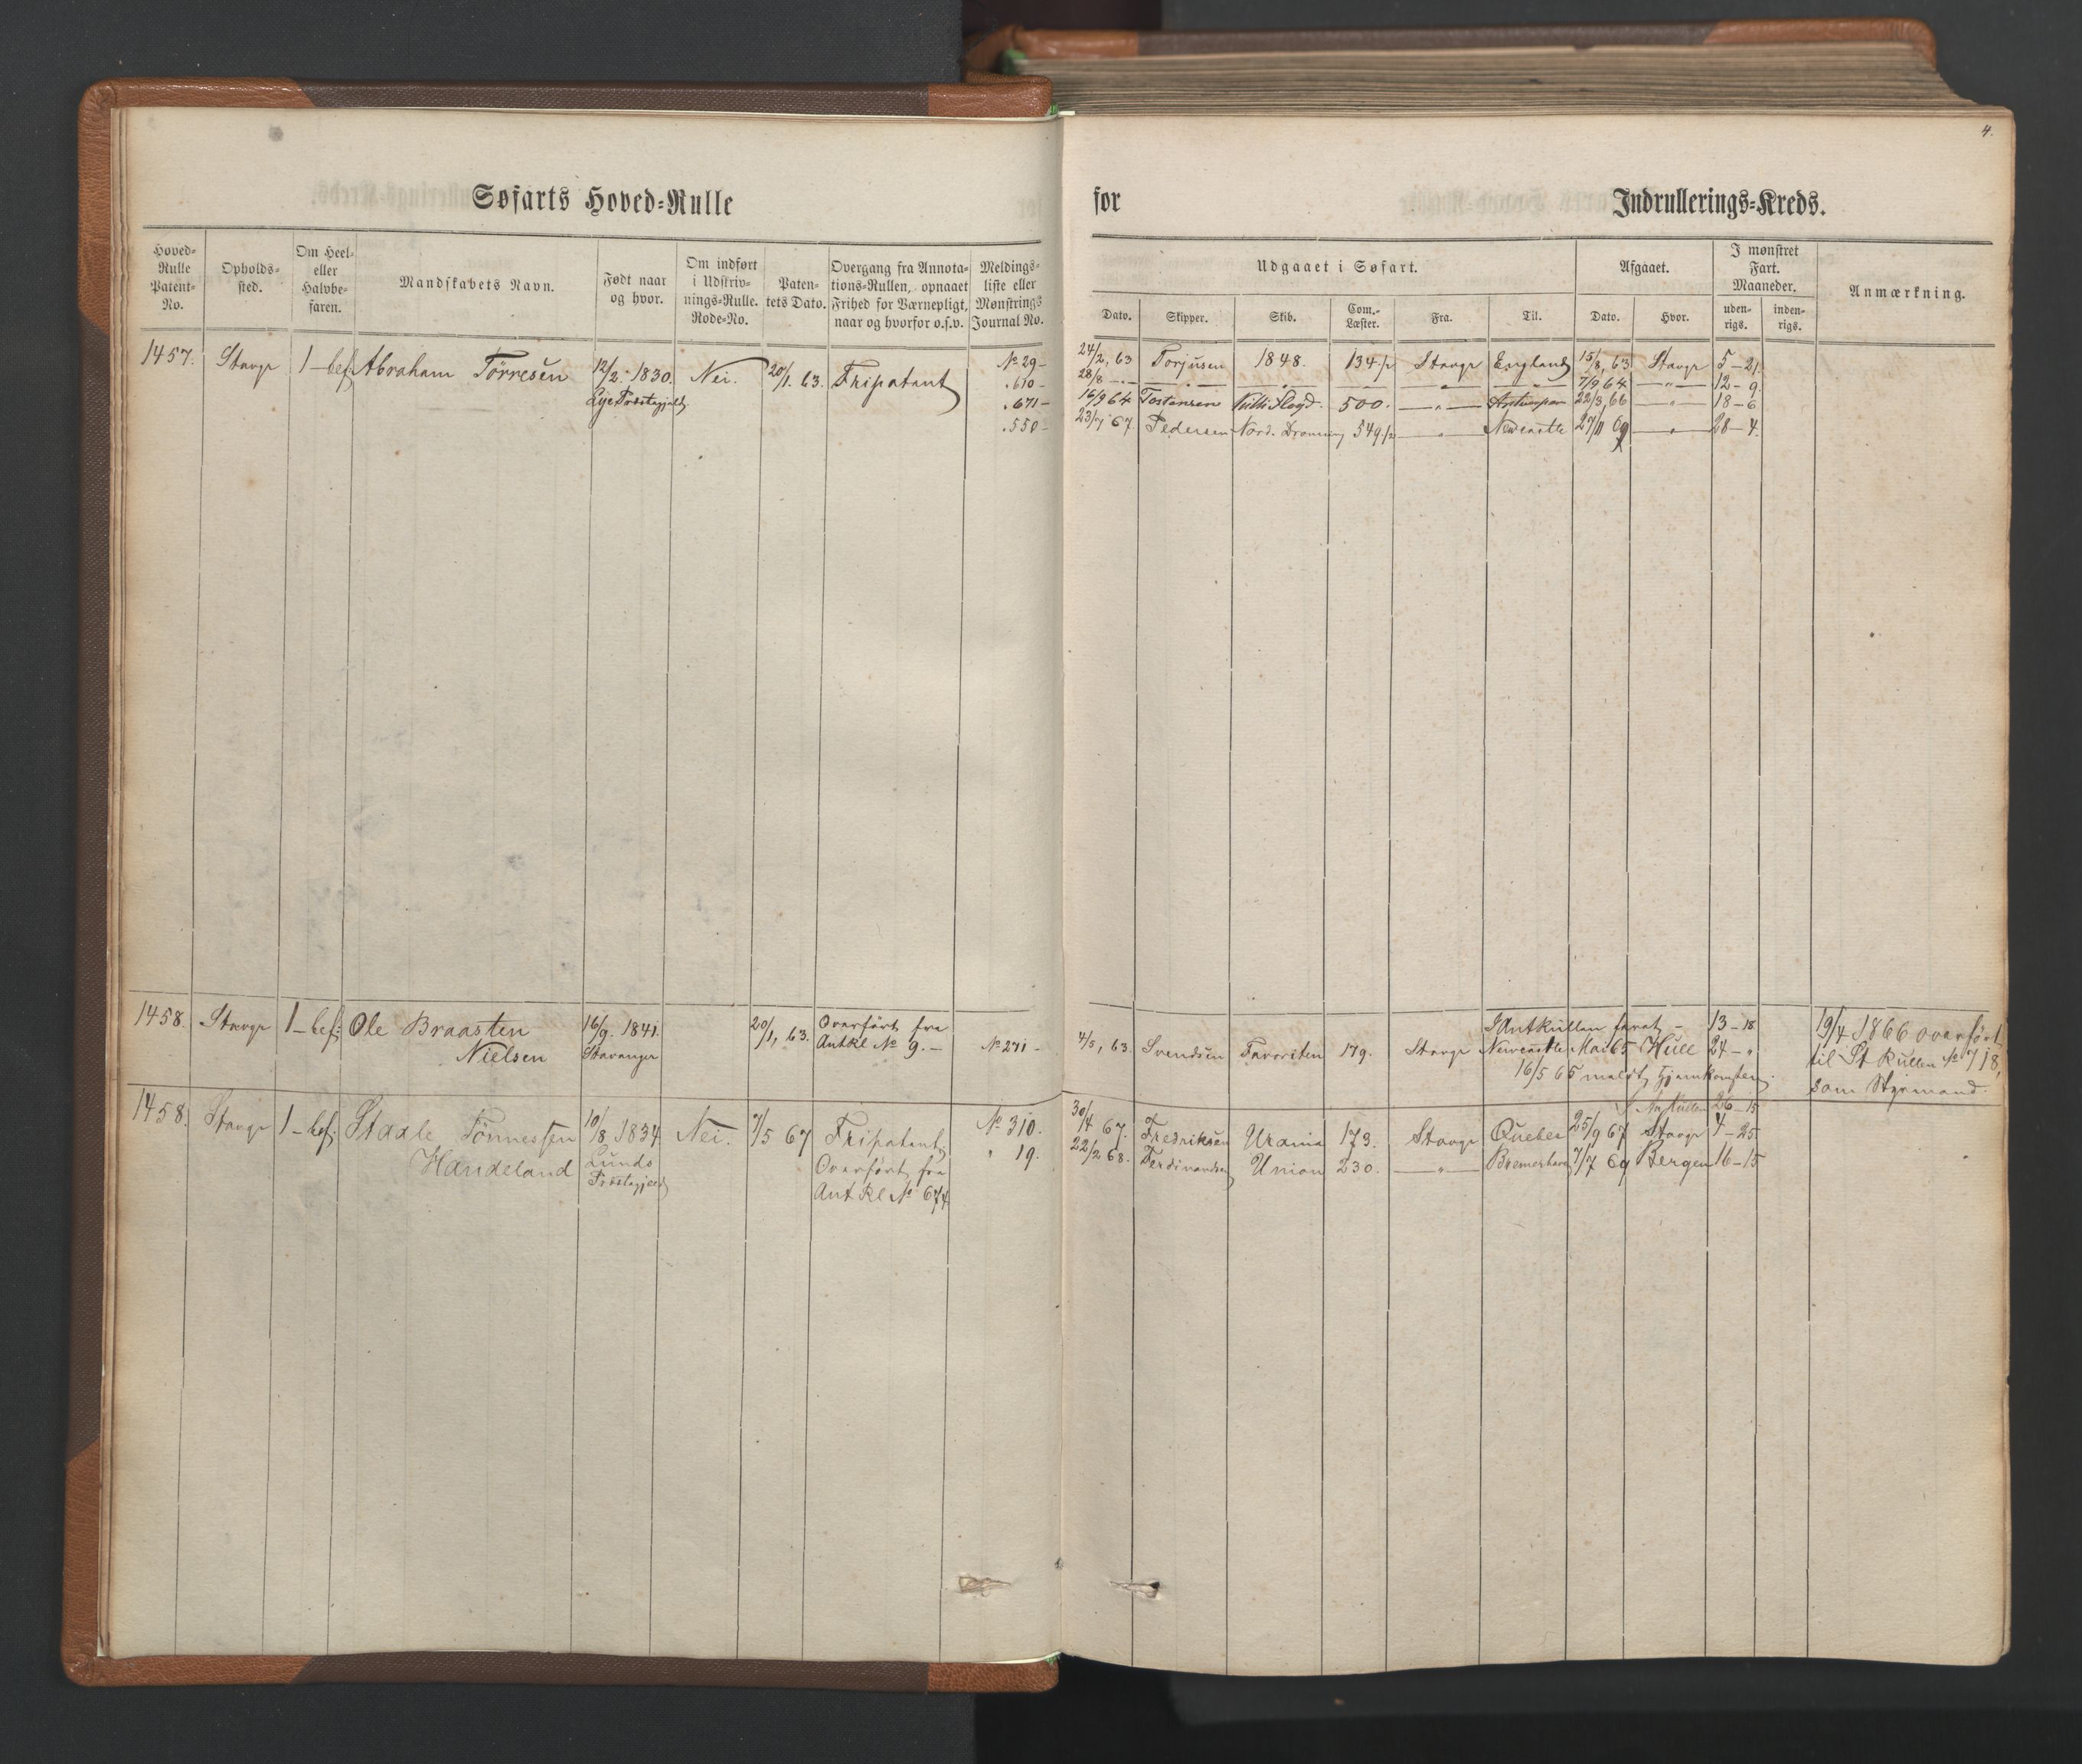 4.
Søfarts Hoved-Rulle for Indrullerings-Kreds.
Hoved-Rulle Patent-No.
Opholds-sted.
Om Heel- eller Halvbe-faren.
Mandskabets Navn.
Født naar og hvor.
Om indført i Udskriv-nings-Rulle. Rode-No.
Paten-tets Dato.
Overgang fra Annota-tions-Rullen, opnaaet Frihed for Værnepligt, naar og hvorfor o.s.v.
Meldings-liste eller Mønstrings Journal No.
Udgaaet i Søfart.
Dato. Skipper. Skib. Com.-Læster. Fra. Til.
Afgaaet.
Dato. Hvor.
I mønstret Fart. Maaneder.
uden-rigs. inden-rigs.
Anmærkning.
1457. Stavgr 1-bef. Abraham Törresen 12/2. 1830. Nei. 20/1. 63. Fripatent No 29- 24/2, 63 Torjusen 1848. 134 1/2 Stavgr England 15/8, 63 Stavgr 5-21.
Lye Præstegjeld. . 610- 28/8 - - - " - - " - - " - - " - - " - 7/9 64 - " - 12-9.
. 671- 16/9 64 Tostensen 500. - " - Antwerpen 22/3, 66 - " - 18-6
. 550- 23/7 67. Pedersen Nord. Dronning 549 1/2 - " - Newcastle 27/11 69 - " - 28-4.
1458. Stavgr 1-bef: Ole Braasten 16/9. 1841. 20/1, 63. Overført fra I Antkullen faret - 13-18 19/4 1866 overført
Nielsen Stavanger Antkl No 9.- No 271- 4/5, 63. Svendsen Favoriten 179. Stavgr Newcastle Mai 65 Hull 24-" til St Rullen No 718,
16/5 65 meldt Hjemkomsten. som Styrmand.
1458. Stavgr 1-bef. Staale Tönnessen 10/8 1834. Nei. 7/5 67 Fripatent, No 310. 30/4 67. Fredriksen Urania 173. Stavgr Quebec 25/9 67 Stavgr 4-25
26-15
Handeland Lunds Præstegjeld Overført fra " 19. 22/2 68. Ferdinandsen Union 230. - " - Bremerhaven 7/7 69 Bergen 16-15
Ant Rl No 674